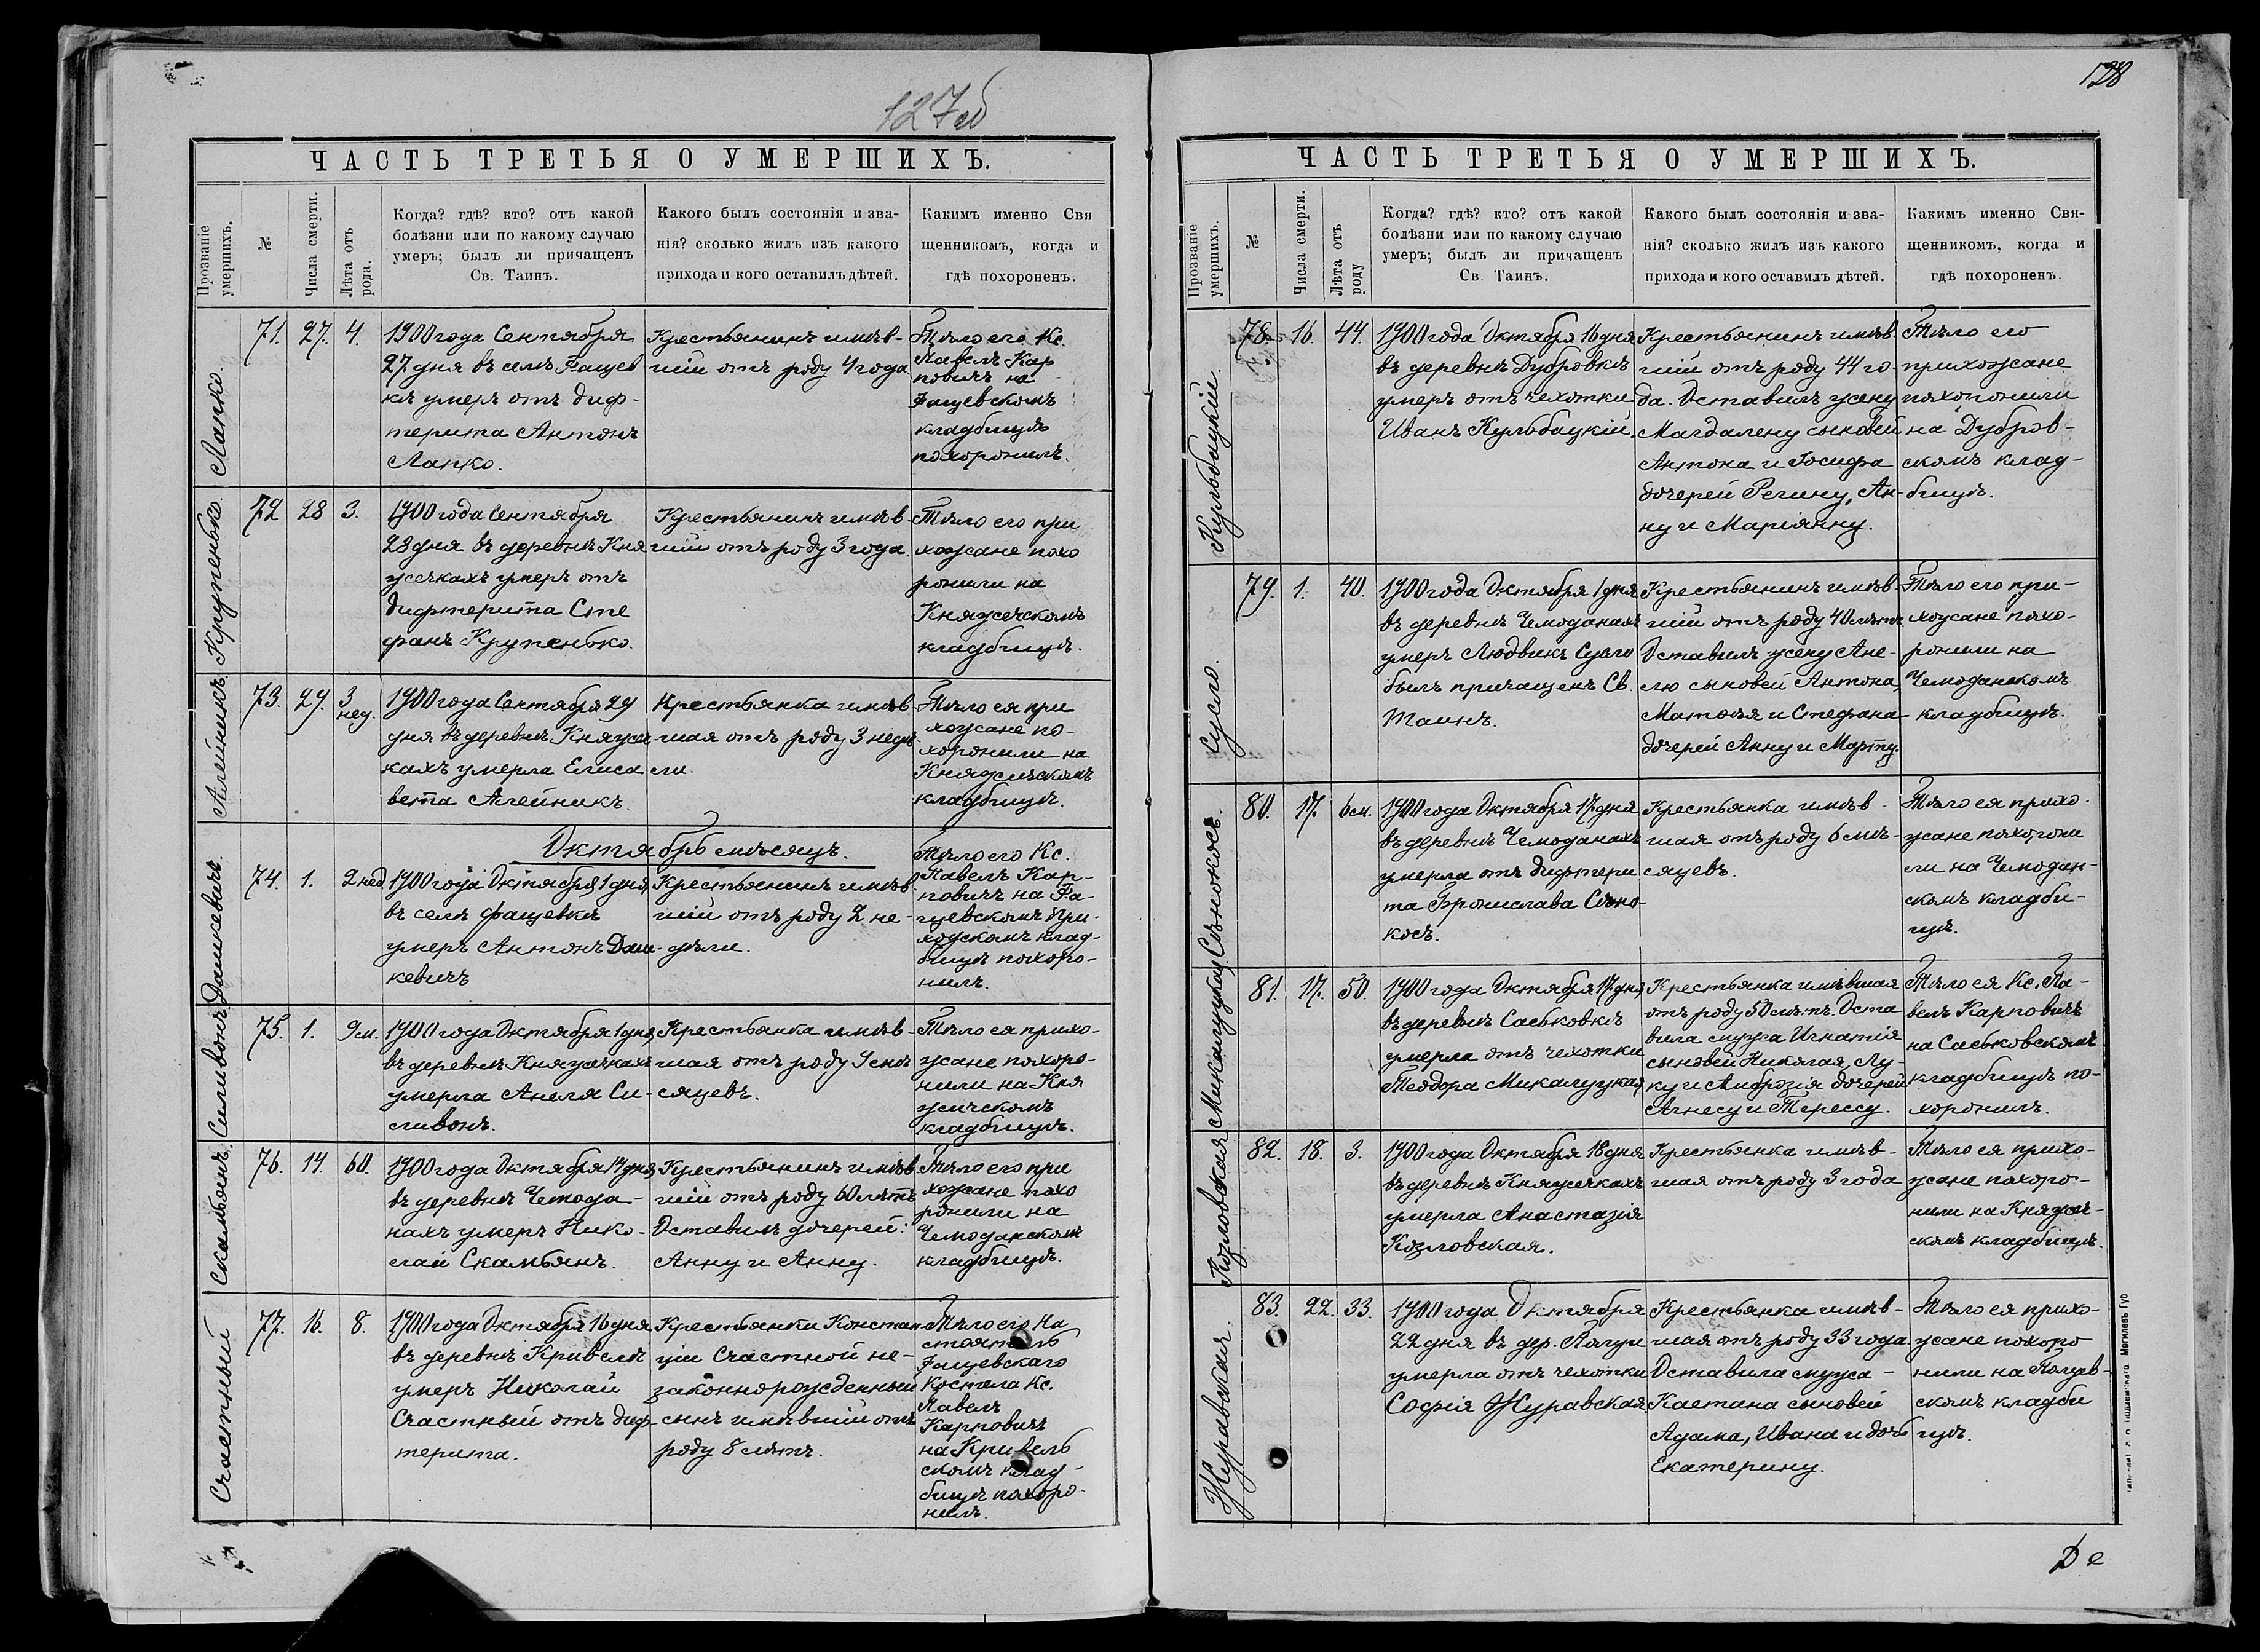 127об
ЧАСТЬ ТРЕТЬЯ О УМЕРШИХЪ.
Прозваніе умершихъ.
№
Числа смерти.
Лѣта отъ рода.
Когда? гдѣ? кто? отъ какой
болѣзни или по какому случаю
умеръ; былъ ли причащенъ
Св. Таинъ.
Какого былъ состоянія и зва-
нія? сколько жилъ изъ какого
прихода и кого оставилъ дѣтей.
Какимъ именно Свя
щенникомъ, когда и
гдѣ похороненъ.
Лапко.
71. 27. 4.
1900 года Сентября
27 дня въ селѣ Фащев
кѣ умеръ отъ диф-
терита Антонъ
Лапко.
Крестьянинъ имѣв-
шій отъ роду 4 года
Тѣло его Кс.
Павелъ Кар
повичъ на
Фащевскомъ
кладбищѣ
похоронилъ.
Крупенько.
72 28 3.
1900 года Сентября
28 дня въ деревнѣ Кня
жечкахъ умеръ отъ
дифтерита Сте
фанъ Крупенько.
Крестьянинъ имѣв-
шій отъ роду 3 года.
Тѣло его при
хожане похо
ронили на
Княжечскомъ
кладбищѣ.
Алейникъ.
73. 29. 3 нед.
1900 года Сентября 29
дня въ деревнѣ Княжеч
кахъ умерла Елиса
вета Алейникъ.
Крестьянка имѣв-
шая отъ роду 3 недѣ-
ли.
Тѣло ея при
хожане по-
хоронили на
Княжечскомъ
кладбищѣ.
Октябрь мѣсяцъ.
Дашкевичъ.
74. 1. 2 нед
1900 года Октября 1 дня
въ селѣ Фащевкѣ
умеръ Антонъ Даш-
кевичъ
Крестьянинъ имѣв
шій отъ роду 2 не-
дѣли.
Тѣло его Кс.
Павелъ Кар-
повичъ на Фа-
щевскомъ при-
ходскомъ клад-
бищѣ похоро-
нилъ.
Силивонъ.
75. 1. 9 м.
1900 года Октября 1 дня
въ деревнѣ Княжечкахъ
умерла Анеля Си-
ливонъ.
Крестьянка имѣв-
шая отъ роду 9 мѣ
сяцевъ.
Тѣло ея прихо-
жане похоро-
нили на Кня
жечскомъ
кладбищѣ.
Скамьянъ.
76. 14. 60.
1900 года Октября 14 дня
въ деревнѣ Чемода-
нахъ умеръ Нико-
лай Скамьянъ.
Крестьянинъ имѣв
шій отъ роду 60 лѣтъ
Оставилъ дочерей:
Анну и Анну.
Тѣло его при
хожане похо
ронили на
Чемоданском
кладбищѣ.
Счастный
77. 16. 8.
1900 года Октября 16 дня
въ деревнѣ Кривелѣ
умеръ Николай
Счастный отъ диф-
терита.
Крестьянки Констан
ціи Счастной не-
законнорожденный
сынъ имѣвшій отъ
роду 8 лѣтъ.
Тѣло его На
стоятель
Фащевскаго
Костела Кс.
Павелъ
Карповичъ
на Кривель
скомъ клад-
бищѣ похоро-
нилъ.
128
ЧАСТЬ ТРЕТЬЯ О УМЕРШИХЪ.
Прозваніе умершихъ.
№
Числа смерти.
Лѣта отъ роду
Когда? гдѣ? кто? отъ какой
болѣзни или по какому случаю
умеръ; былъ ли причащенъ
Св. Таинъ.
Какого былъ состоянія и зва-
нія? сколько жилъ изъ какого
прихода и кого оставилъ дѣтей.
Какимъ именно Свя-
щенникомъ, когда и
гдѣ похороненъ.
Кульбацкій.
78. 16. 44.
1900 года Октября 16 дня
въ деревнѣ Дубровкѣ
умеръ отъ чехотки
Иванъ Кульбацкій.
Крестьянинъ имѣв-
шій отъ роду 44 го-
да. Оставилъ жену
Магдалену сыновей
Антона и Іосифа
дочерей Регину, Ан-
ну и Маріянну.
Тѣло его
прихожане
похоронили
на Дубров-
скомъ клад-
бищѣ.
Сусло.
79. 1. 40.
1900 года Октября 1 дня
въ деревнѣ Чемоданахъ
умеръ Людвикъ Сусло
былъ причащенъ Св.
Таинъ.
Крестьянинъ имѣв-
шій отъ роду 40 лѣтъ
Оставилъ жену Ане-
лю сыновей Антона,
Матвѣя и Стефана
дочерей Анну и Марту.
Тѣло его при-
хожане похо-
ронили на
Чемоданскомъ
кладбищѣ.
Сѣнокосъ.
80. 17. 6 м.
1900 года Октября 17 дня
въ деревнѣ Чемоданахъ
умерла отъ дифтери
та Бронислава Сѣно-
косъ.
Крестьянка имѣв-
шая отъ роду 6 мѣ-
сяцевъ.
Тѣло ея прихо-
жане похорони
ли на Чемодан-
скомъ кладби-
щѣ.
Микалуцкая
81. 17. 50.
1900 года Октября 17 дня
въ деревнѣ Саськовкѣ
умерла отъ чехотки
Теодора Микалуцкая
Крестьянка имѣвшая
отъ роду 50 лѣтъ. Оста
вила мужа Игнатія
сыновей Николая, Лу-
ку и Амброзія дочерей
Агнесу и Терессу.
Тѣло ея Кс. Па-
велъ Карповичъ
на Саськовскомъ
кладбищѣ по-
хоронилъ.
Козловская
82. 18. 3.
1900 года Октября 18 дня
въ деревнѣ Княжечкахъ
умерла Анастазія
Козловская.
Крестьянка имѣв-
шая отъ роду 3 года
Тѣло ея прихо-
жане похоро-
нили на Княжеч-
скомъ кладбищѣ.
Журавская.
83. 22. 33.
1900 года Октября
22 дня въ дер.
умерла отъ чехотки
Софія Журавская
Крестьянка имѣв-
шая отъ роду 33 года
Оставила мужа
Каетана сыновей
Адама, Ивана и дочь
Екатерину.
Тѣло ея прихо-
жане похоро
нили на
скомъ кладби
щѣ.